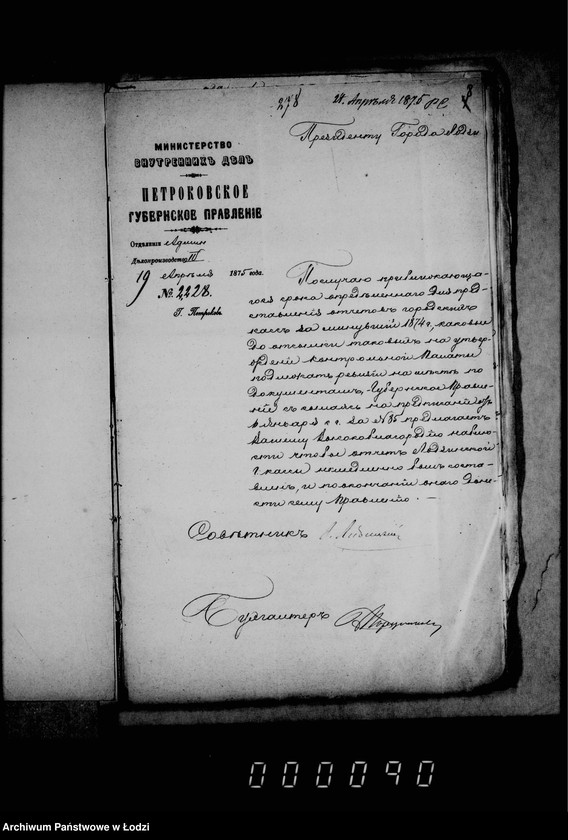 278
24 Апрѣля 1875
Президенту Города Лодзи
МИНИСТЕРСТВО
ВНУТРЕННИХЪ ДѢЛЪ
ПЕТРОКОВСКОЕ
ГУБЕРНСКОЕ ПРАВЛЕНІЕ
Отдѣленія Админ
Дѣлопроизводство III
19 Апрѣля 1875 года.
№ 2228.
Г. Петроковъ
Послучаю приближающа-
гося срока опредѣленнаго для пред-
ставленія отчетовъ городскихъ
кассъ за минувшій 1874 г, каковые
до отсылки таковыхъ на утвер-
жденіе контрольной Палаты
подлежатъ ревизіи на мѣстѣ по
документамъ, Губернское Правле-
ніе ссылаясь на предписаніе
Января с. г. за № 85 предлагаетъ
Вашему Высокоблагородію
чтобы отчетъ Лодзинской
Г кассы немедленно былъ соста-
вленъ, и по окончаніи онаго доне-
сти сему Правленію. —
Совѣтникъ
Бухгалтеръ
000090
Archiwum Państwowe w Łodzi